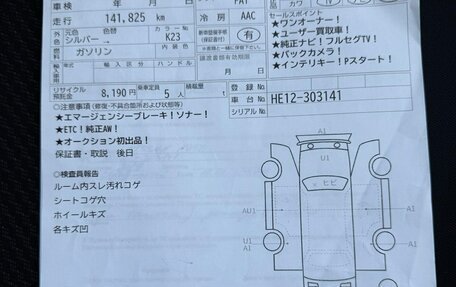 車検 年 月 日
FAT
革
カワ
TV
走行 141,825 km
冷房 AAC
セールスポイント
★ワンオーナー!
★ユーザー買取車!
★純正ナビ!フルセグTV!
★バックカメラ!
★インテリキー!Pスタート!
元色 色替 カラーNo
シルバー→ K23
新車登録手帳
(保証書付) 有 ・ 無
燃料 ガソリン 内装色
譲渡書類有効期限
月 日
輸入車用 輸入区分 ハンドル
リサイクル預託金 8,190 円 乗車定員 5人 積載量 t
登録 No
車台 No HE12-303141
シリアルNo
○注意事項(修復・不具合箇所および状態等)
★エマージェンシーブレーキ!ソナー!
★ETC!純正AW!
★オークション初出品!
保証書・取説 後日
○検査員報告
ルーム内スレ汚れコゲ
シートコゲ穴
ホイールキズ
各キズ凹
A1
U1
ヒビ
AU1
A1
U1
A1
A1